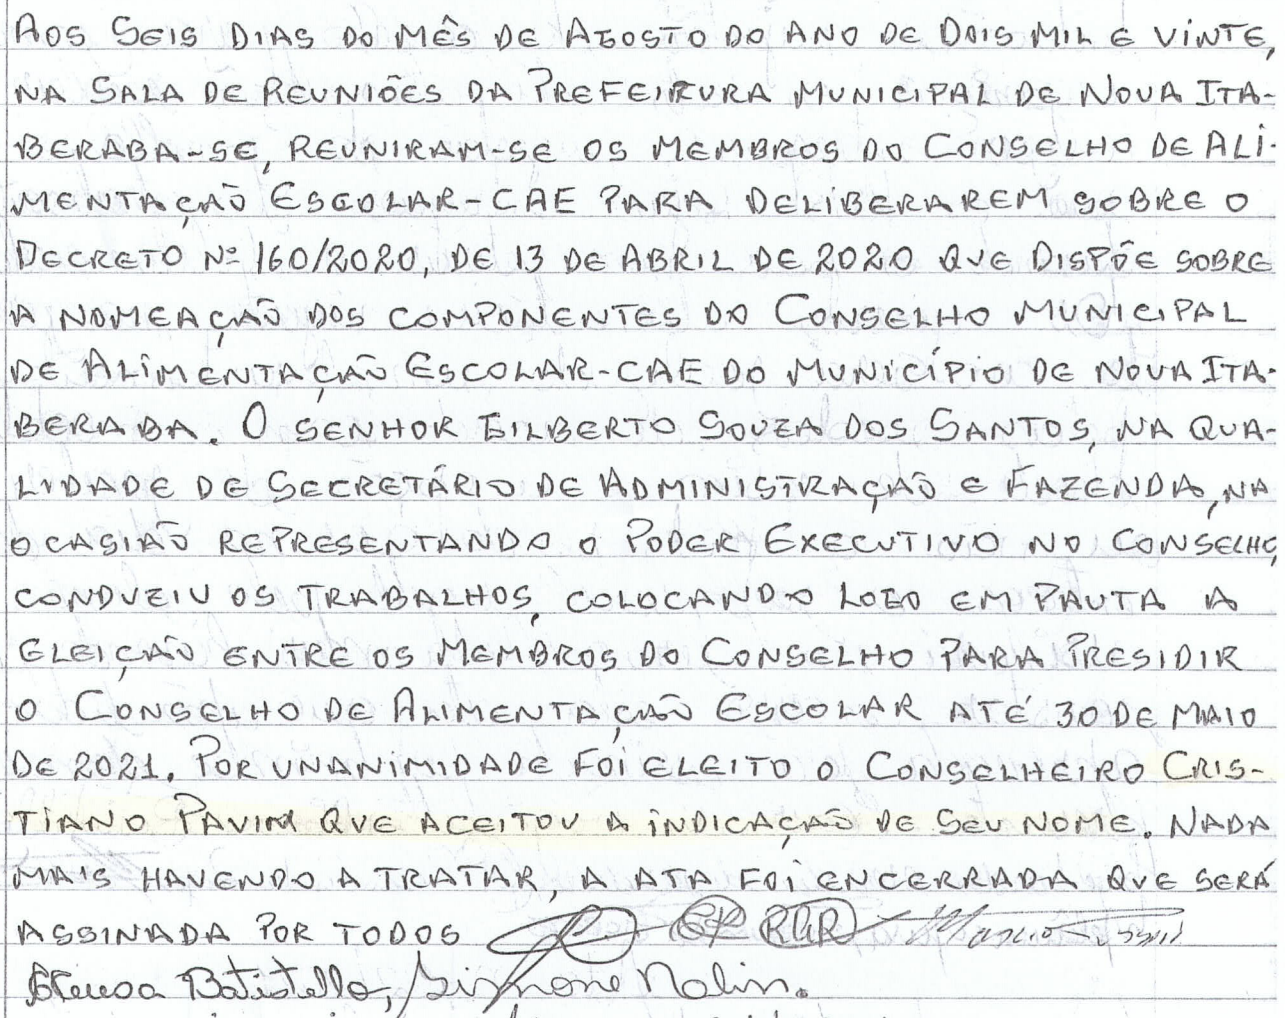 AOS SEIS DIAS DO MÊS DE AGOSTO DO ANO DE DOIS MIL E VINTE,
NA SALA DE REUNIÕES DA PREFEITURA MUNICIPAL DE NOVA ITA-
BERABA-SE, REUNIRAM-SE OS MEMBROS DO CONSELHO DE ALI-
MENTAÇÃO ESCOLAR-CAE PARA DELIBERAREM SOBRE O
DECRETO Nº 160/2020, DE 13 DE ABRIL DE 2020 QUE DISPÕE SOBRE
A NOMEAÇÃO DOS COMPONENTES DO CONSELHO MUNICIPAL
DE ALIMENTAÇÃO ESCOLAR-CAE DO MUNICÍPIO DE NOVA ITA-
BERABA. O SENHOR GILBERTO SOUZA DOS SANTOS, NA QUA-
LIDADE DE SECRETÁRIO DE ADMINISTRAÇÃO E FAZENDA, NA
OCASIÃO REPRESENTANDO O PODER EXECUTIVO NO CONSELHO,
CONDUZIU OS TRABALHOS, COLOCANDO LOGO EM PAUTA A
ELEIÇÃO ENTRE OS MEMBROS DO CONSELHO PARA PRESIDIR
O CONSELHO DE ALIMENTAÇÃO ESCOLAR ATÉ 30 DE MAIO
DE 2021. POR UNANIMIDADE FOI ELEITO O CONSELHEIRO CRIS-
TIANO PAVIM QUE ACEITOU A INDICAÇÃO DE SEU NOME. NADA
MAIS HAVENDO A TRATAR, A ATA FOI ENCERRADA QUE SERÁ
ASSINADA POR TODOS
Batistello, Simone Nalin.